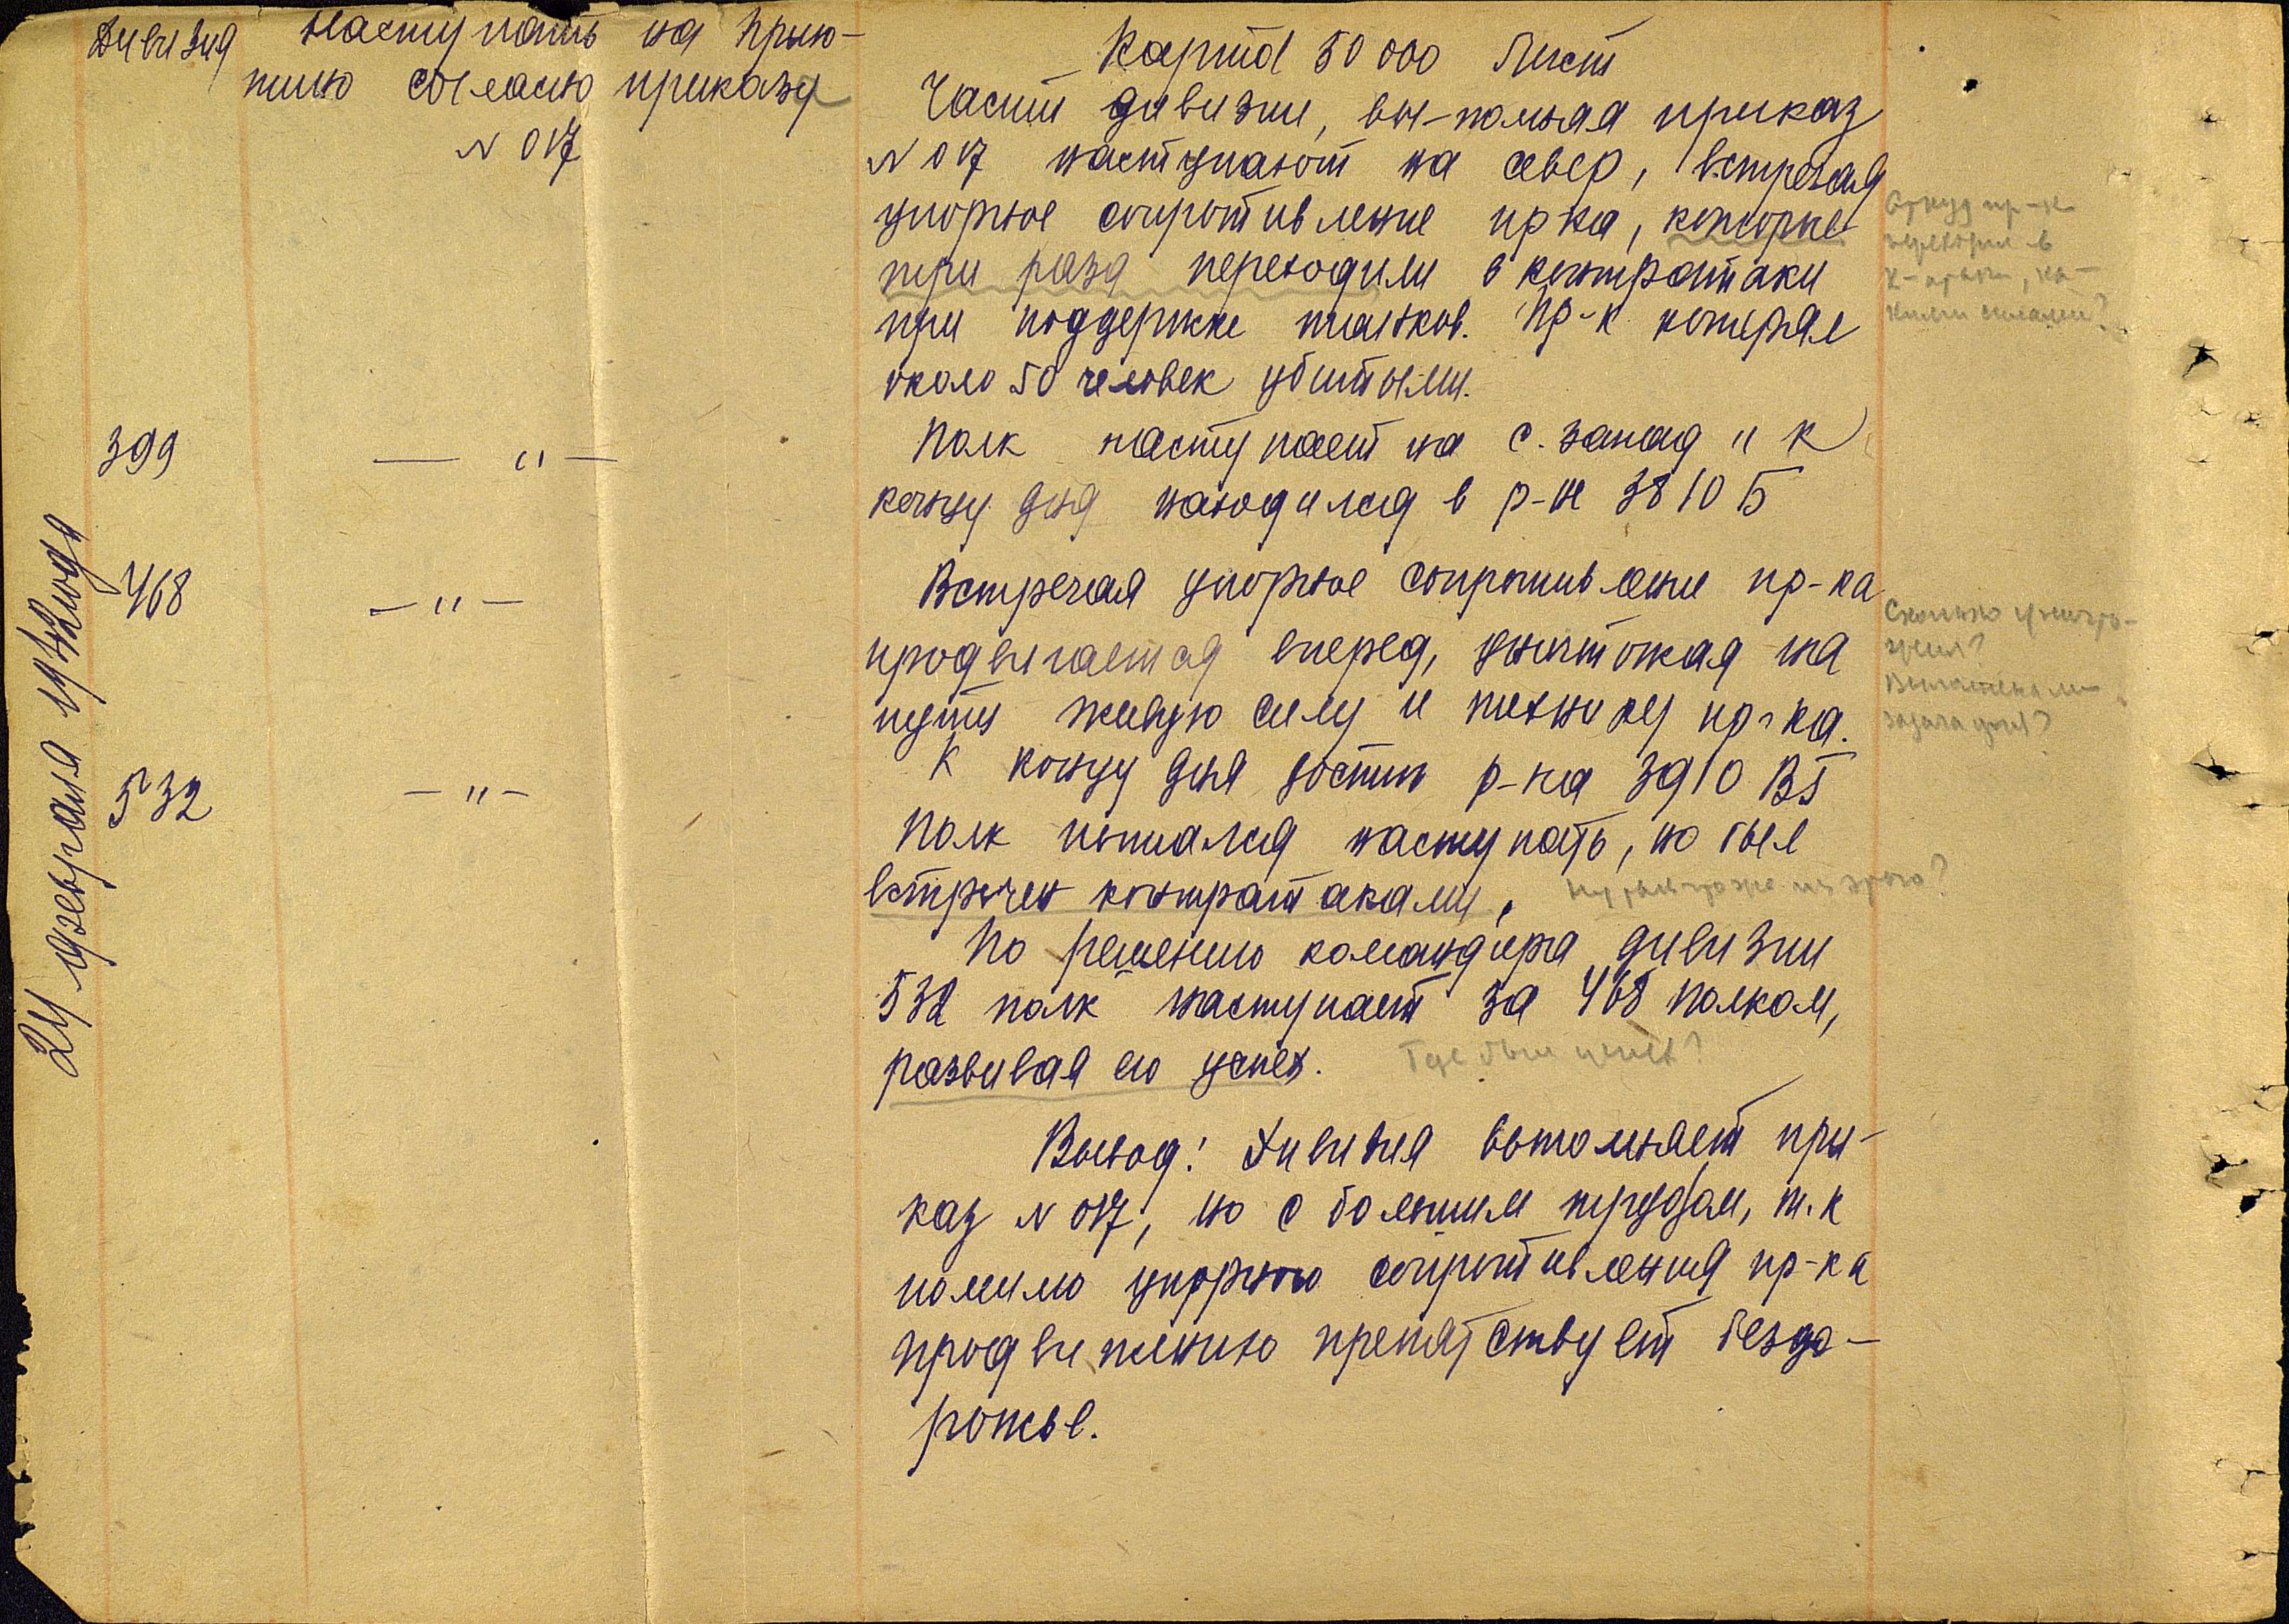 24 февраля 1942 года
Дивизия
Наступать на Прыю-
тино согласно приказу
N 017
399
— " —
468
— " —
532
— " —
Карта 50 000 Лист
Части дивизии, вы-полняя приказ
N 017 наступают на север, встречая
упорное сопротивление пр-ка, которые
три раза переходили в контратаки
при поддержке танков. Пр-к потерял
около 50 человек убитыми.
Полк наступает на с. запад и к
концу дня находился в р-не 3810 Б
Встречая упорное сопротивление пр-ка
продвигается вперед, уничтожая на
пути живую силу и технику пр-ка.
К концу дня достиг р-на 3910
Полк пытался наступать, но был
встречен контратаками.
По решению командира дивизии
532 полк наступает за 468 полком,
развивая его успех.
Вывод: Дивизия выполняет при-
каз N 017, но с большим трудом, т.к
помимо упорного сопротивления пр-ка
продвижению препятствует бездо-
рожье.
Откуда пр-к
переходил в
к-атаки, ка-
кими силами?
Сколько уничто-
жено?
Выполнена ли
задача дня?
из этого?
Где был успех?